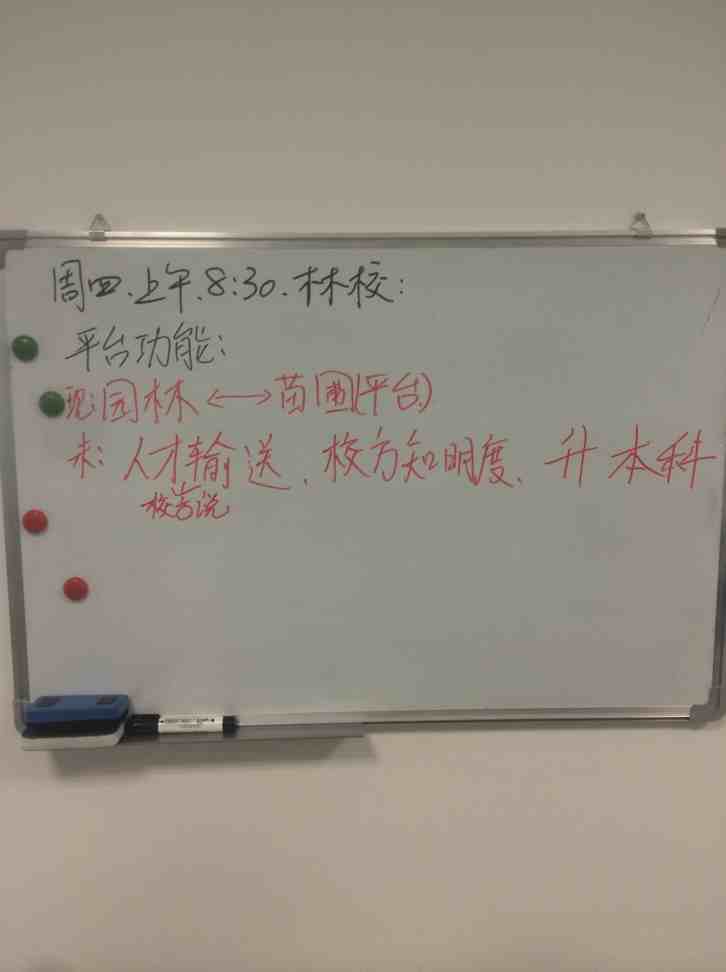 周四、上午、8:30、林校:
平台功能:
现:园林 ←→ 苗圃(平台)
未: 人才输送、校方知明度、升本科
校方说